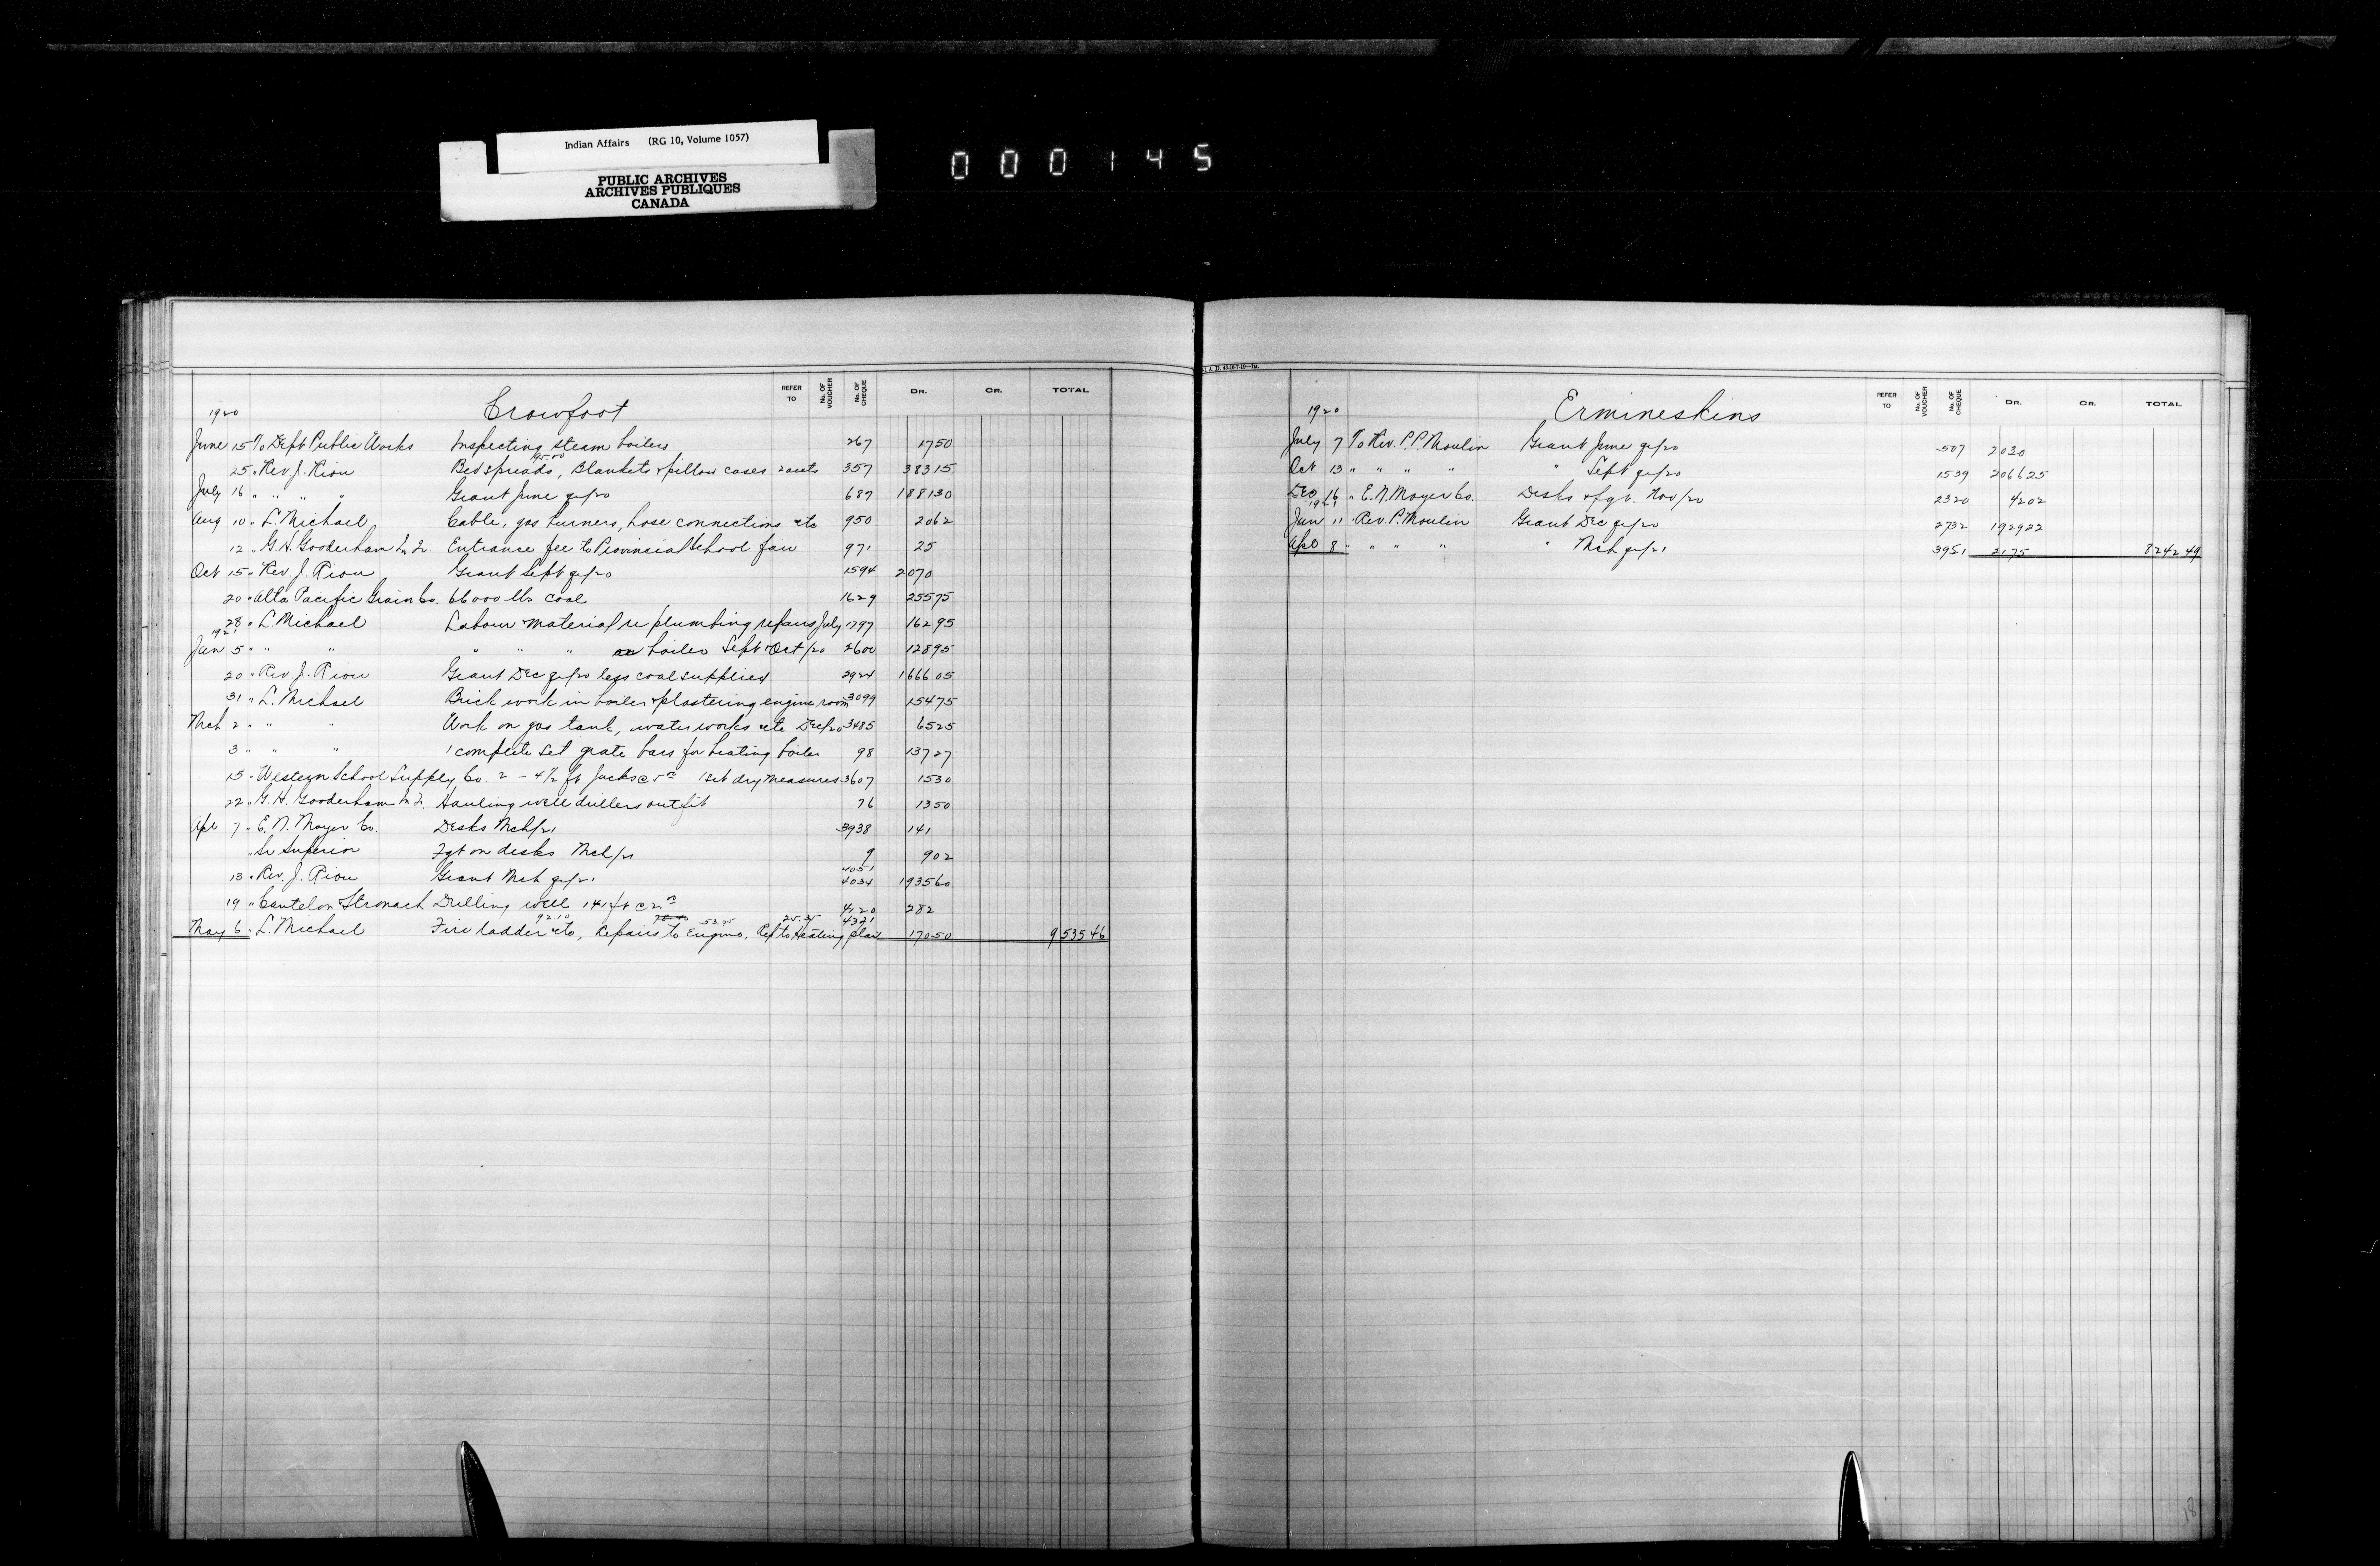 Indian Affairs (RG 10, Volume 1057)
PUBLIC ARCHIVES
ARCHIVES PUBLIQUES
CANADA
000145
REFER TO No. OF VOUCHER No. OF CHEQUE DR. CR. TOTAL
1920 Crowfoot
June 15 To Dept Public Works Inspecting steam boilers 267 1750
25 " Rev. J. Riou Bedspreads, Blankets & pillow cases 357 38315
July 16 " " " " Grant June qr/20 687 188130
Aug 10 " L. Michael Cable, gas burners, hose connections etc 950 2062
12 " G. H. Gooderham Entrance fee to Provincial School fair 971 25
Oct 15 " Rev. J. Riou Grant Sept qr/20 1594 2070
20 " Alta Pacific Grain Co. 66000 lbs coal 1629 25575
28 " L. Michael Labour material re plumbing repairs July 1797 16295
1921
Jan 5 " " " " " " boiler Sept & Oct/20 2600 12895
20 " Rev. J. Riou Grant Dec qr/20 less coal supplied 2924 166605
31 " L. Michael Brick work in boiler & plastering engine room 3099 15475
Mch 2 " " " Work on gas tank, water works etc Dec/20 3485 6525
3 " " " 1 complete set grate bars for heating boiler 98 13727
15 " Western School Supply Co. 2 - 4½ ft Jacks @ 5 00 1 set dry measures 3607 1530
22 " G. H. Gooderham Hauling well drillers outfit 76 1350
Apl 7 " E. N. Moyer Co. Desks Mch/21 3938 141
" Sr Superior Fgt on desks Mch/21 9 902
4051
13 " Rev. J. Riou Grant Mch qr/21 4034 193560
19 " Cantelon Stronach Drilling well 141 ft @ 2 00 4120 282
92.10 53.05 25.35 4321
May 6 " L. Michael Fire ladder etc, Repairs to Engine, Rep to Heating plant 17050 953546
I. A. D. 43-10-7-19—1M.
REFER TO No. OF VOUCHER No. OF CHEQUE DR. CR. TOTAL
1920 Ermineskins
July 7 To Rev. P. P. Moulin Grant June qr/20 507 2030
Oct 13 " " " " " Sept qr/20 1539 206625
Dec 16 " E. N. Moyer Co. Desks & fgt. Nov/20 2320 4202
1921
Jan 11 " Rev. P. Moulin Grant Dec qr/20 2732 192922
Apl 8 " " " " " Mch qr/21 3951 2175 824249
18